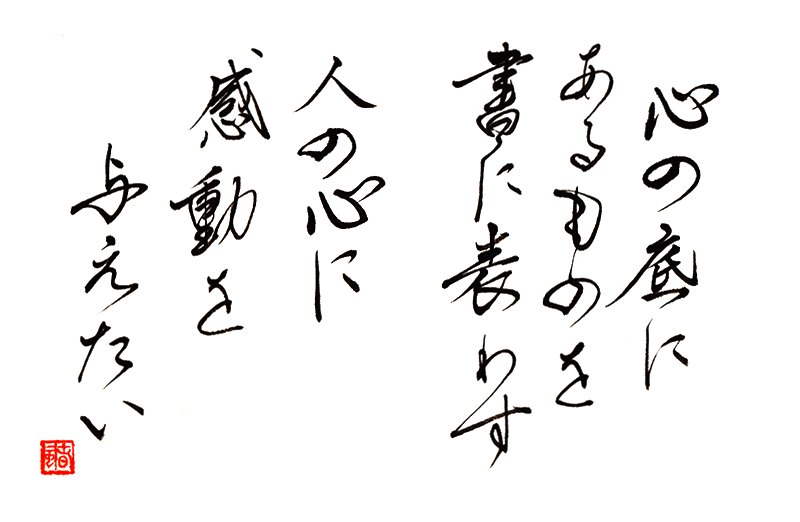 心の底に
あるものを
書に表わす
人の心に
感動を
与えたい